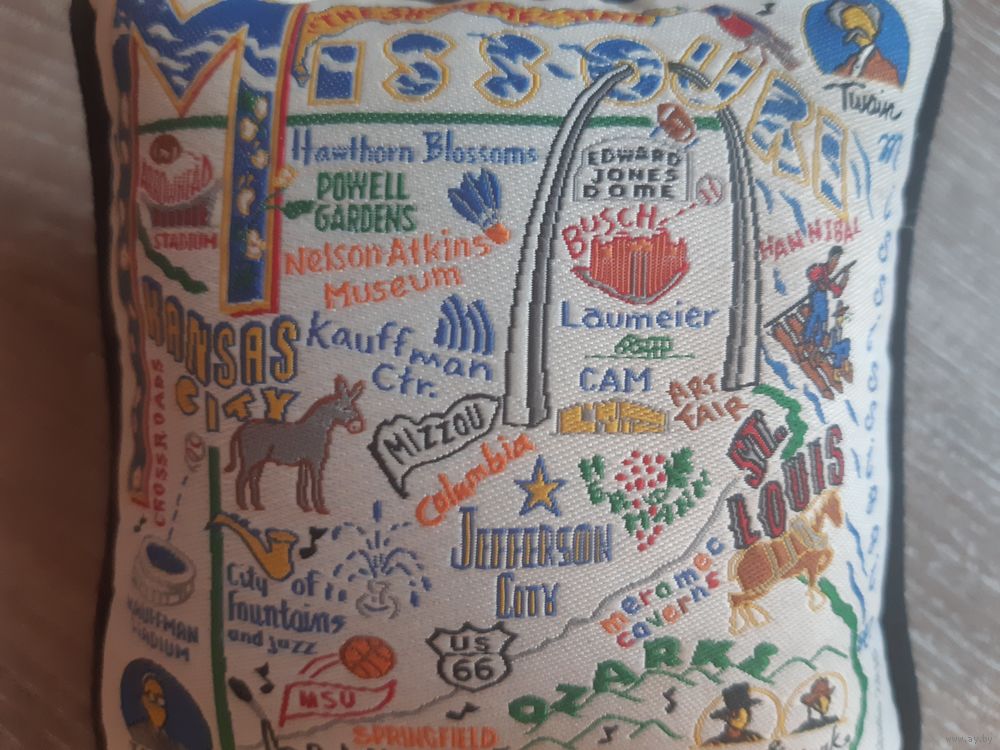 MISSOURI
Twain
Hawthorn Blossoms
EDWARD
JONES
DOME
POWELL
GARDENS
BUSCH
ARROWHEAD
STADIUM
HANNIBAL
Nelson Atkins
Museum
KANSAS
CITY
Kauffman
Ctr.
Laumeier
CAM
ART
FAIR
CROSSROADS
MIZZOU
Columbia
ST.
LOUIS
JEFFERSON
CITY
City of
Fountains
and jazz
meramec
caverns
KAUFFMAN
STADIUM
US
66
OZARKS
MSU
SPRINGFIELD
www.ay.by